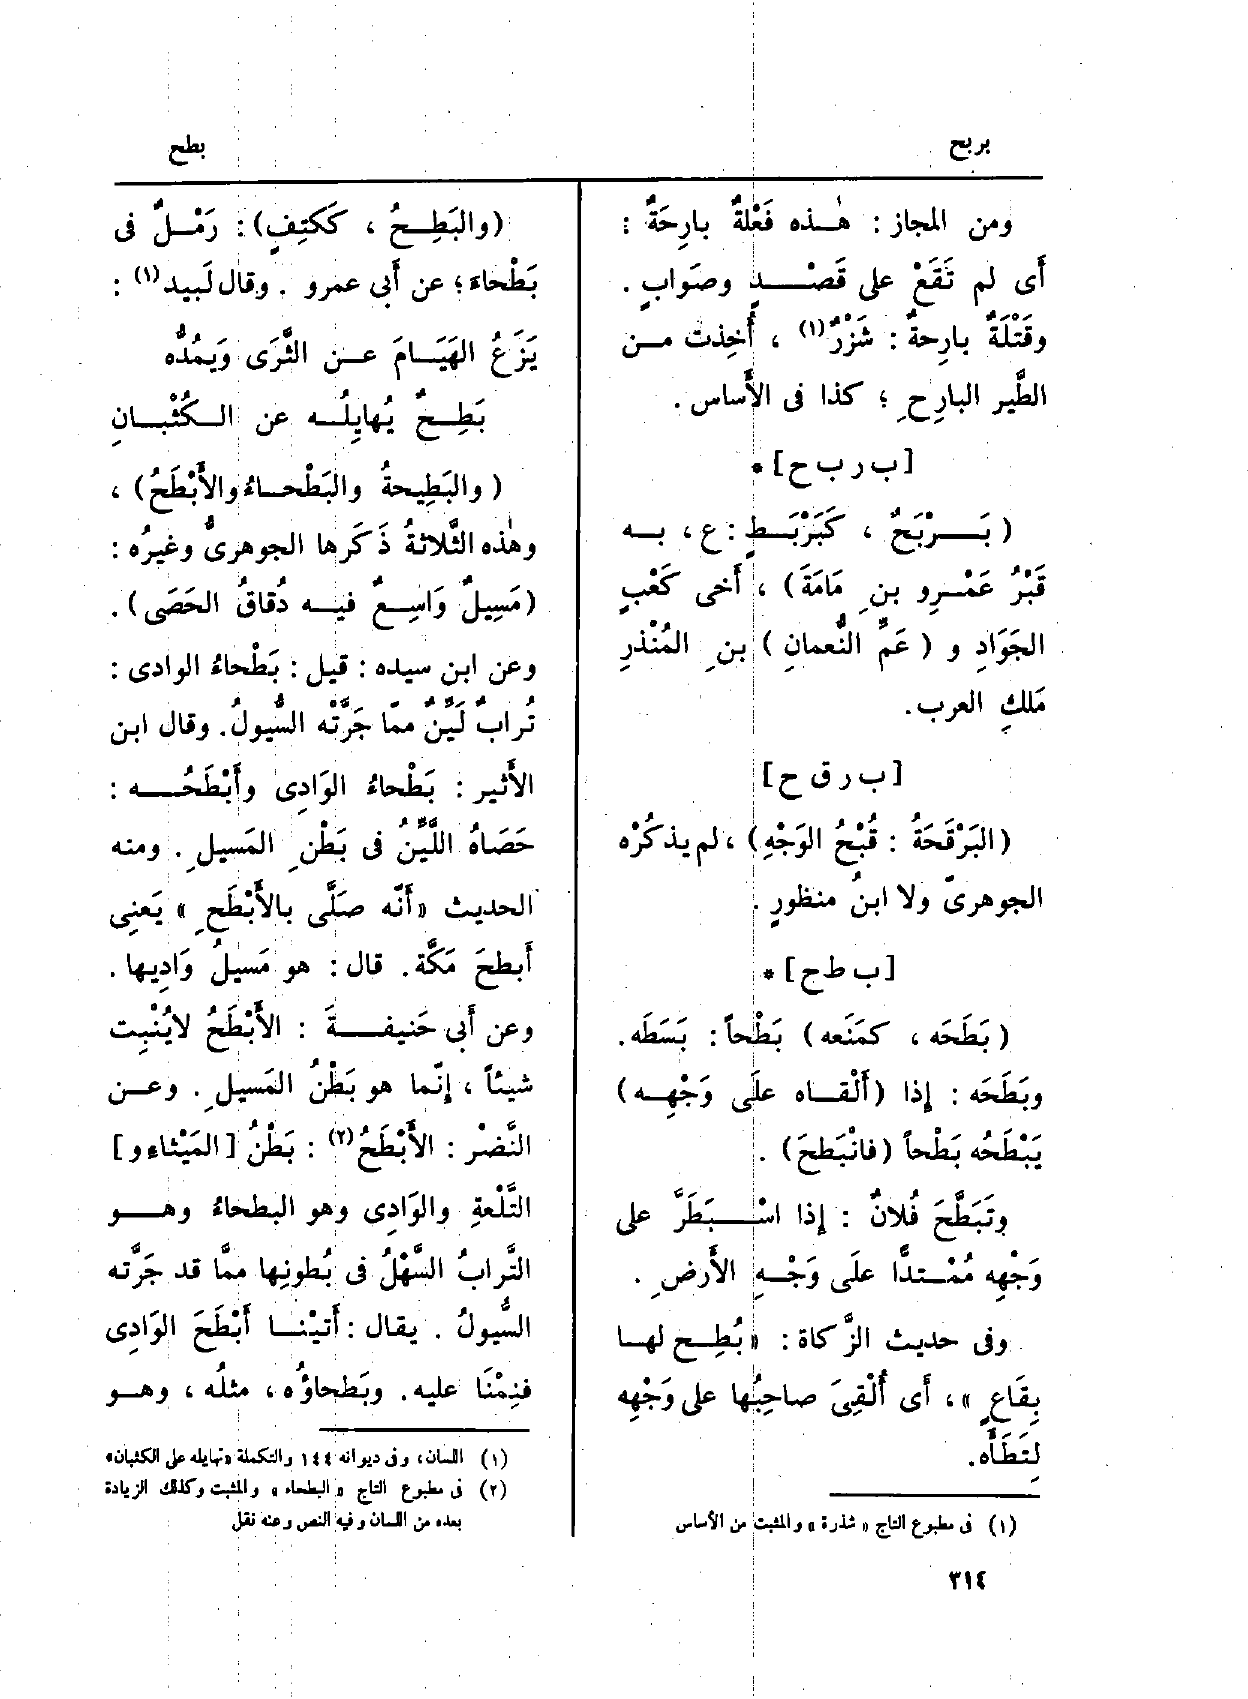 بربح
بطح
ومن المجاز : هٰـذه فَعْلةٌ بارِحَةٌ :
أى لم تَقَعْ على قَصْـدٍ وصَوابٍ .
وقَتْلَةٌ بارِحةٌ : شَزْرٌ (١) ، أُخِذت مـن
الطَّير البارِحِ ؛ كذا فى الأَساس .
[ ب ر ب ح ] *
( بَـرْبَحٌ ، كَبَرْبَـطٍ : ع ، بـه
قَبْرُ عَمْـرِو بنِ مَامَةَ ) ، أَخى كَعْبٍ
الجَوَادِ و ( عَمِّ النُّعمانِ ) بنِ المُنْذرِ
مَلكِ العرب .
[ ب ر ق ح ]
( البَرْقَحَةُ : قُبْحُ الوَجْهِ ) ، لم يذكُرْه
الجوهرىّ ولا ابنُ منظورٍ .
[ ب ط ح ] *
( بَطَحَه ، كمَنَعه ) بَطْحاً : بَسَطَه .
وبَطَحَه : إِذا ( أَلْقـاه علَى وَجْهِـه )
يَبْطَحُه بَطْحاً ( فانْبَطحَ ) .
وتَبَطَّحَ فُلانٌ : إِذا اسْـبَطَرَّ على
وَجْهِه مُمْـتدًّا علَى وَجْـهِ الأَرضِ .
وفى حديث الزَّكاة : « بُطِـح لهـا
بِقَاعٍ » ، أَى أُلْقِىَ صاحِبُها على وَجْهِه
لِتَطَأَه .
(١) فى مطبوع التاج « شذرة » والمثبت من الأساس
( والبَطِـحُ ، كَكتِفٍ ) : رَمْـلٌ فى
بَطْحاءَ ؛ عن أَبى عمرو . وقال لَبيد (١) :
يَزَعُ الهَيَـامَ عـن الثَّرَى وَيَمُدُّه
بَطِـحٌ يُهايِلُـه عن الـكُثْبـانِ
( والبَطِيحةُ والبَطْحـاءُ والأَبْطَحُ ) ،
وهٰذه الثَّلاثةُ ذَكَرها الجوهرىُّ وغيرُه :
( مَسِيلٌ وَاسِـعٌ فيـه دُقاقُ الحَصَى ) .
وعن ابن سيده : قيل : بَطْحاءُ الوادى :
تُرابٌ لَيِّنٌ ممّا جَرَّتْه السُّيولُ . وقال ابن
الأَثير : بَطْحاءُ الوَادِى وأَبْطَحُـه :
حَصَاهُ اللَّيِّنُ فى بَطْنِ المَسيلِ . ومنه
الحديث « أَنّه صَلَّى بالأَبْطَحِ » يَعنِى
أَبطحَ مَكَّة . قال : هو مَسيلُ وَادِيها .
وعن أَبى حَنيفـةَ : الأَبْطَحُ لايُنْبِت
شيئاً ، إِنّما هو بَطْنُ المَسيلِ . وعـن
النَّضْر : الأَبْطَحُ (٢) : بَطْنُ [ المَيْثاءِ و ]
التَّلْعةِ والوَادِى وهو البطحاءُ وهـو
التَّرابُ السَّهْلُ فى بُطونِها ممَّا قد جَرَّته
السُّيولُ . يقال : أَتيْنـا أَبْطَحَ الوَادِى
فنِمْنَا عليه . وبَطحاوُه ، مثلُه ، وهـو
(١) اللسان ، وفى ديوانه ١٤٤ والتكملة « تهايله على الكثبان »
(٢) فى مطبوع التاج « البطحاء » والمثبت وكذلك الزيادة
بعده من اللسان وفيه النص وعنه نقل
٣١٤